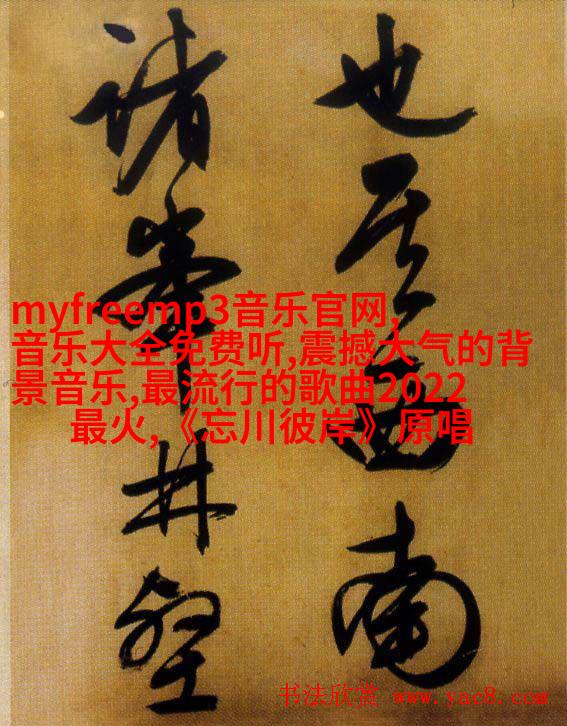 也其西南
諸峯林壑
myfreemp3音乐官网,
音乐大全免费听,震撼大气的背
景音乐,最流行的歌曲2022
最火,《忘川彼岸》原唱
书法欣赏 www.yac8.com